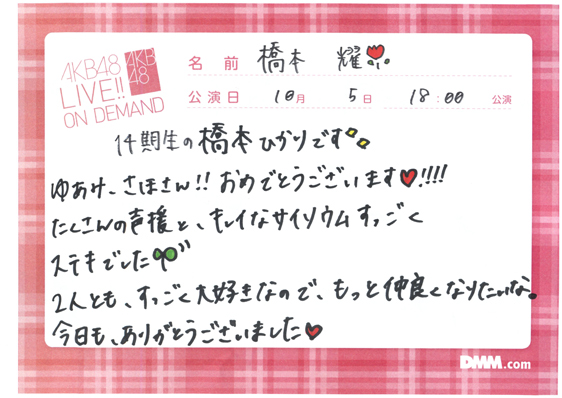 AKB48
LIVE!!
ON DEMAND
AKB
48
名前 橋本 耀
公演日 10月 5日 18:00 公演
14期生の橋本ひかりです
ゆあみ、さほさん!! おめでとうございます♥!!!!
たくさんの声援と、キレイなサイリウムすっごく
ステキでした
2人とも、すっごく大好きなので、もっと仲良くなりたいな。
今日も、ありがとうございました♥
DMM.com